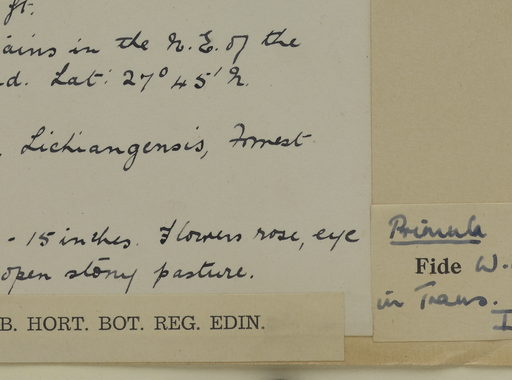 ft.
ains in the N.E. of the
d. Lat: 27° 45' N.
. Lichiangensis, Forrest
- 15 inches. Flowers rose, eye
open stony pasture.
B. HORT. BOT. REG. EDIN.
Primula
Fide W.
in Trans.